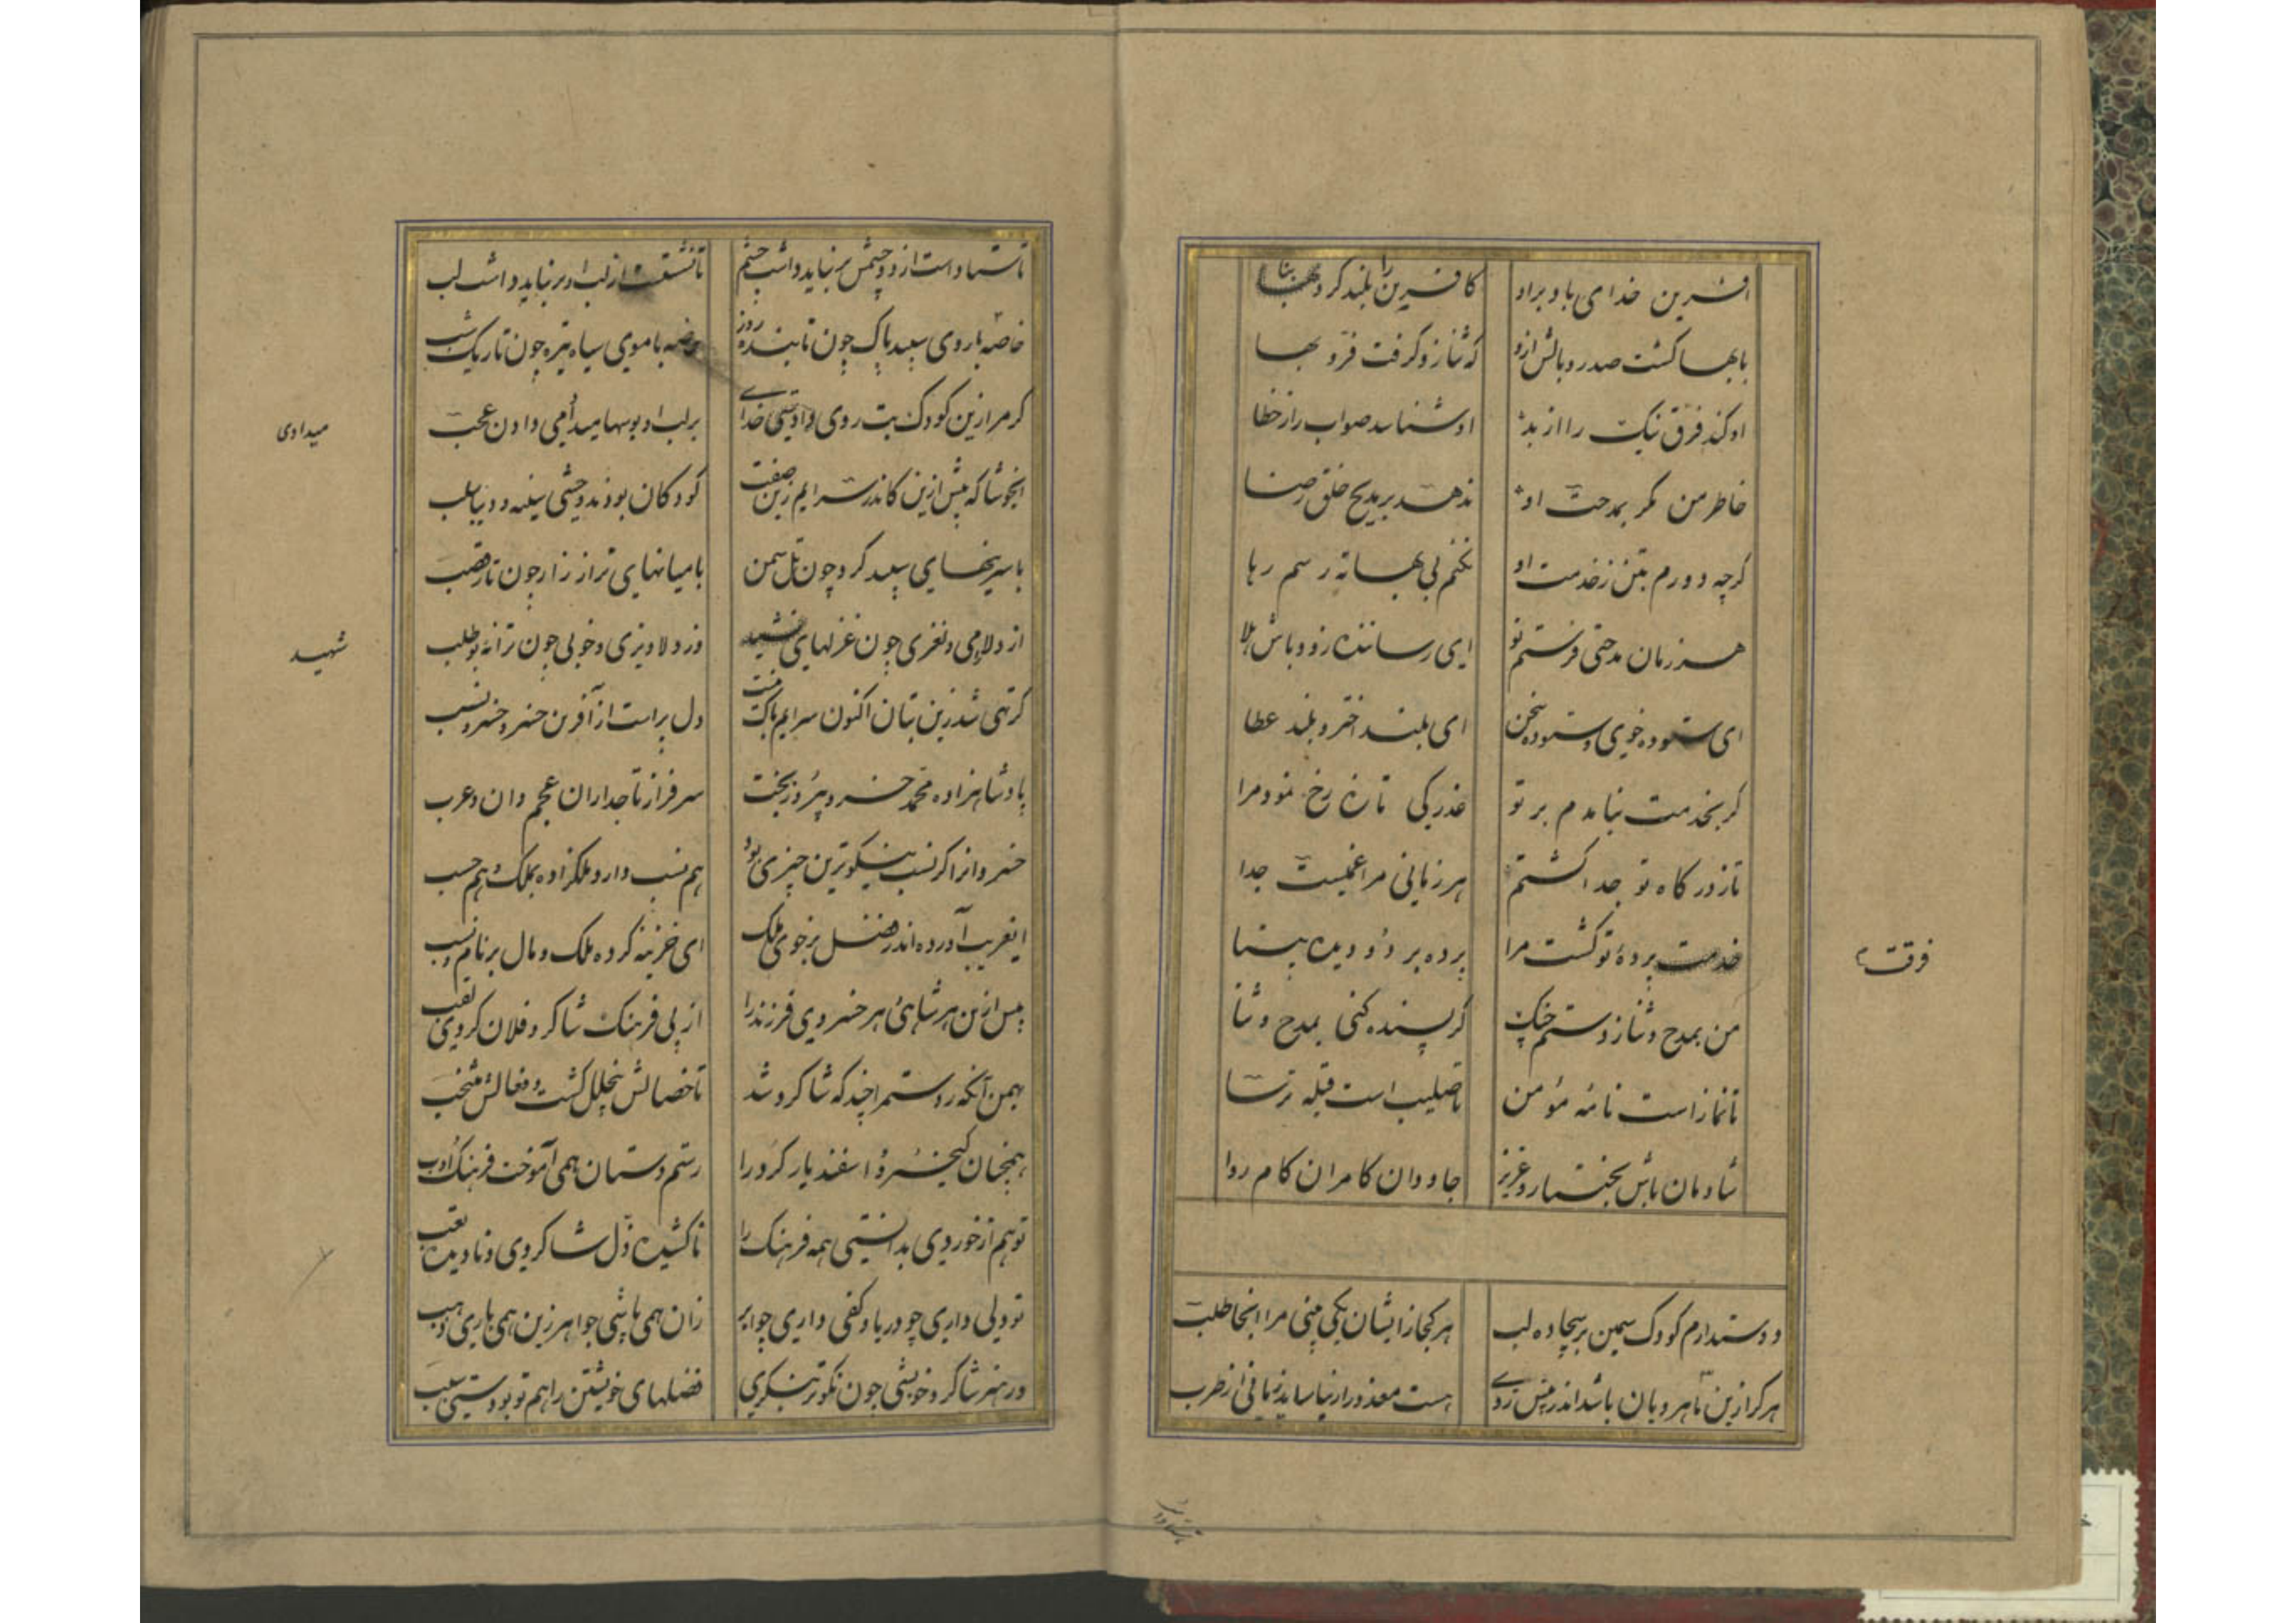 آفرین خدای باد بر او کآفرین را بلند کرد بنا
بابها گشت صدر و بالش ازو که ثنا زو گرفت فرّ و بها
او کند فرق نیک را از بد او شناسد صواب را ز خطا
خاطر من مگر بمدحت او ندهد بر مدیح خلق رضا
گرچه دورم بتن ز خدمت او نکنم بی بهانه رسم رها
هر زمان مدحتی فرستم نو ای رساننده زود باش هلا
ای ستوده خوی و ستوده سخن ای بلند اختر و بلند عطا
گر بخدمت نیامدم بر تو عذرکی تازه رخ نمود مرا
تا ز درگاه تو جدا گشتم هر زمانی مرا غمیست جدا
خدمت پرده تو گشت مرا پرده بر دو دیده بینا
فرقت
من بمدح و ثنا زدستم چنگ گر پسنده کنی بمدح و ثنا
تا نماز است نامه مؤمن تا صلیب است قبله ترسا
شادمان باش بختیار و عزیز جاودان کامران کام روا
دوست دارم کودک سیمین بر بیجاده لب هر کجا زایشان یکی بینی مرا آنجا طلب
هر کرا زین ماهرویان باشد اندر پیش روی هست معذور ار نیاساید زمانی از طرب
تا ستاد است از دو چشمش بر نباید داشت چشم تا نشست از لب او بر نباید داشت لب
خاصه با روی سپید پاک چون تابنده روز خاصه با موی سیاه تیره چون تاریک شب
گر مرا زین کودک بت روی دادیتی خدای بر لب او بوسها میدامی دادن عجب
میدادی
ایخوشا که پیش ازین کاندر سرایم زین صفت کودکان بودند وحشی سینه و دیبا سلب
با سرینهای سپید گرد چون تل سمن با میانهای نزار زار چون تار قصب
از دلارامی و نغزی چون غزلهای شهید وز دلاویزی و خوبی چون ترانه بوطلب
شهید
گر تهی شد زین بتان اکنون سرایم باک نیست دل پر است از آفرین خسرو خسرو نسب
پادشاهزاده محمد خسرو پیروزبخت سرفراز تاجداران عجم وان و عرب
خسروانرا گر نسب نیکوترین چیزی بود هم نسب دارد ملکزاده بملک و هم حسب
اینغریب آورده اندر فضل بر خوی ملک ای خزینه کرده ملک و مال بر نام و نسب
پیش ازین هر شاهی هر خسروی فرزند را از پی فرهنگ شاگرد فلان کردی لقب
بهمن آنگه رستم را چند گه شاگرد شد تا خصالش بیخلل گشت و فعالش منتخب
همچنان کیخسرو و اسفندیار گرد را رستم دستان همی آموخت فرهنگ و ادب
تو هم از خوردی بدانستی همه فرهنگ را ناکشیده ذل شاگردی و نادیده تعب
تو دلی داری چو دریا و کفی داری چو ابر زان همی پاشی جواهر زین همی باری ذهب
در هنر شاگرد خویشی چون نکوتر بنگری فضلهای خویشتن را هم تو بودستی سبب